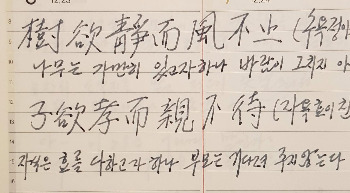 樹欲靜而風不止 (수욕정이
나무는 가만히 있고자 하나 바람이 그치지 아
子欲孝而親不待 (자욕효이친
자식은 효를 다하고자 하나 부모는 기다려 주지 않는다